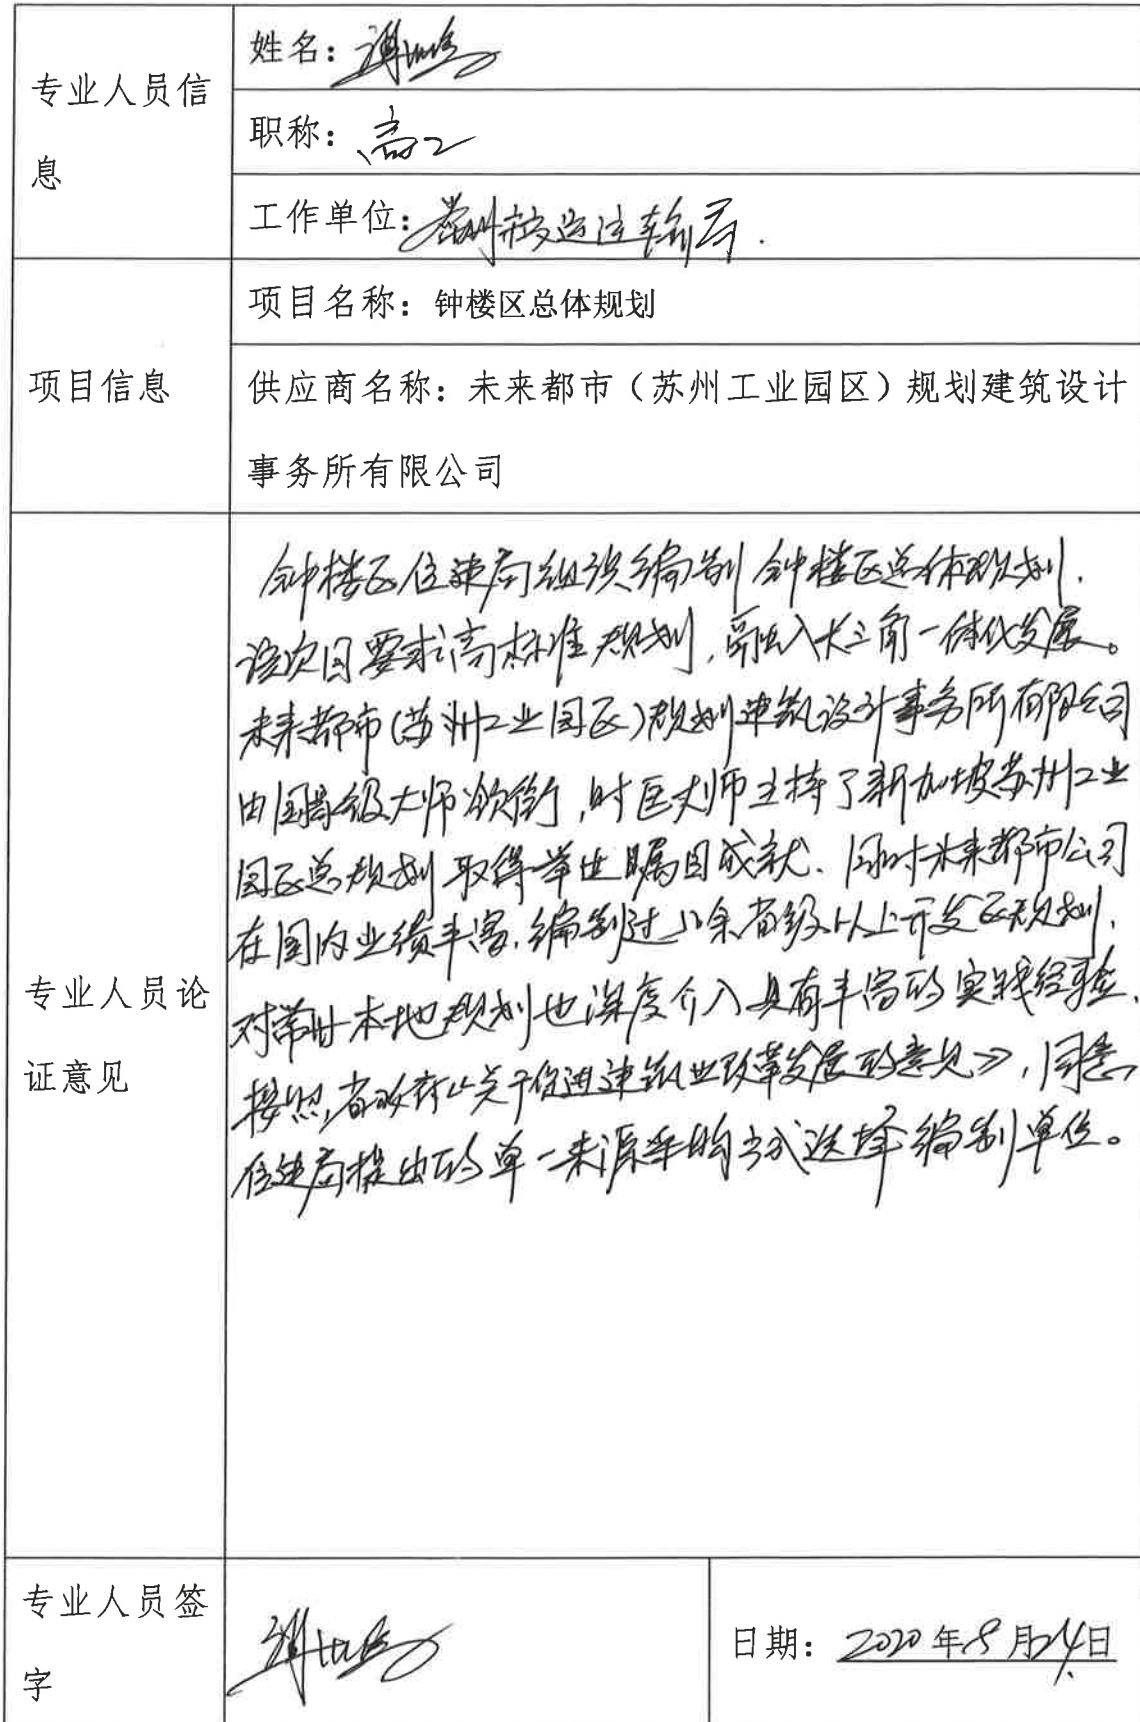 专业人员信息
姓名：
职称：高工
工作单位：常州市交通运输局.
项目信息
项目名称：钟楼区总体规划
供应商名称：未来都市（苏州工业园区）规划建筑设计
事务所有限公司
专业人员论证意见
钟楼区住建局组织编制钟楼区总体规划.
该项目要求高标准规划,融入长三角一体化发展。
未来都市(苏州工业园区)规划建筑设计事务所有限公司
由国家级大师领衔,时匡大师主持了新加坡苏州工业
园区总规划取得举世瞩目成就.同时未来都市公司
在国内业绩丰富.编制过余省级以上开发区规划,
对常州本地规划也深度介入具有丰富的实践经验.
按照,省政府《关于促进建筑业改革发展的意见》,同意
住建局提出的单一来源采购方式选择编制单位。
专业人员签字
日期：2020年8月24日